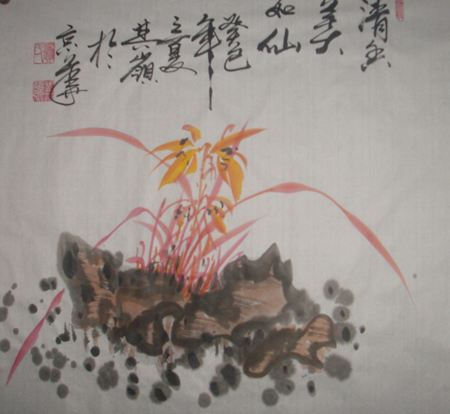 清香
美
如仙
癸巳
年
之夏
其嶺
於
京華